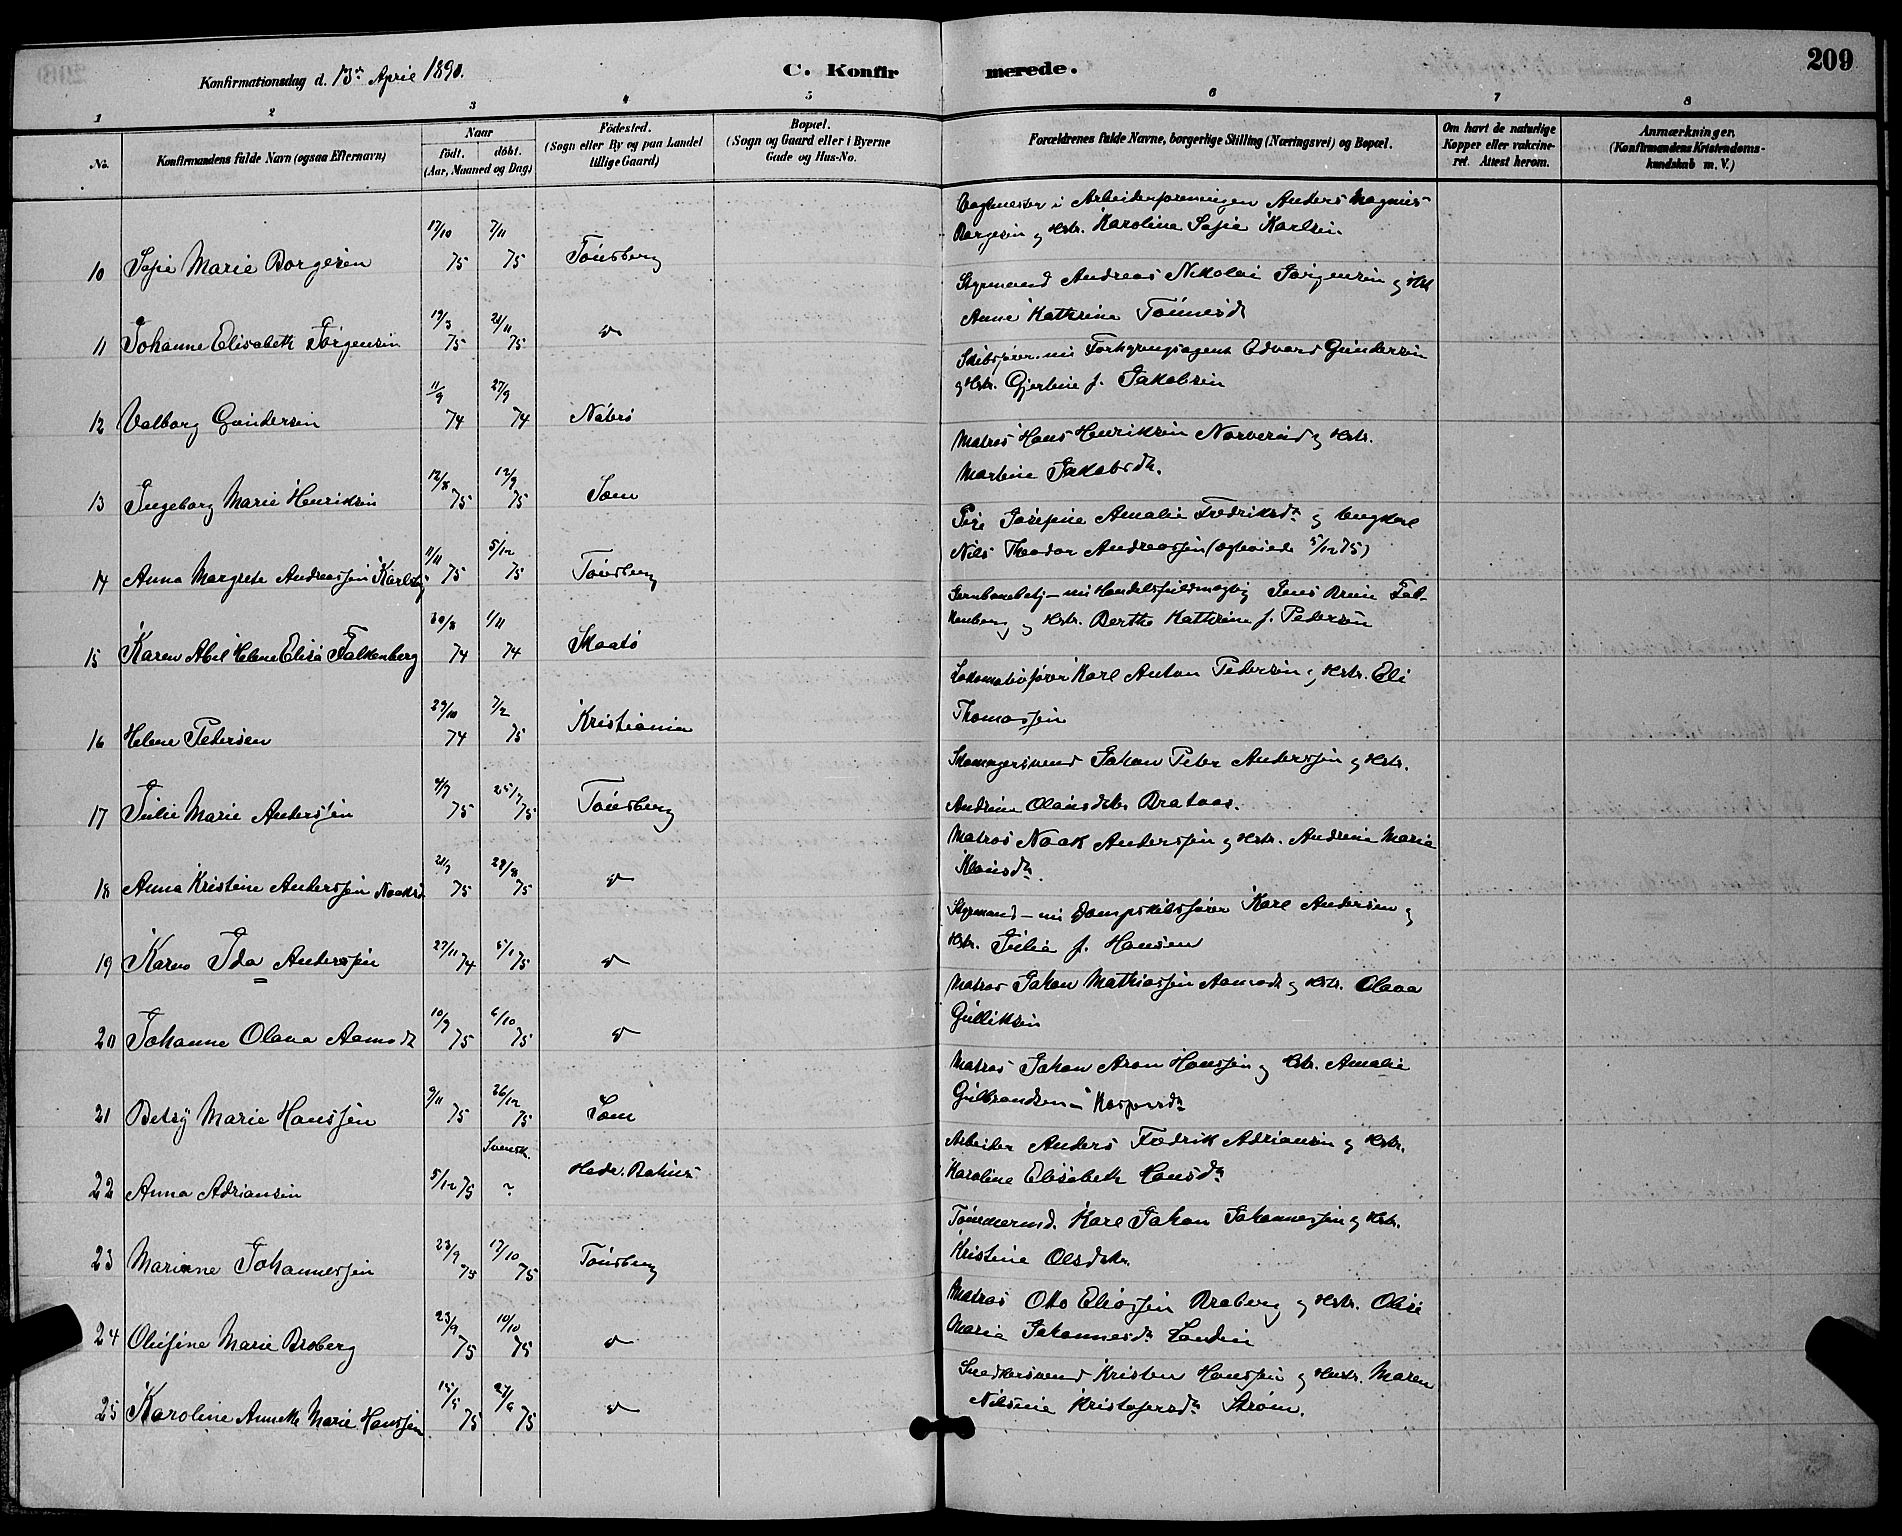 209
Konfirmationsdag d. 13de April 1890.
C. Konfirmerede.
1 2 3 4 5 6 7 8
No.
Konfirmandens fulde Navn (ogsaa Efternavn)
Naar
født. døbt.
(Aar, Maaned og Dag)
Fødested.
(Sogn eller By og paa Landet
tillige Gaard)
Bopæl.
(Sogn og Gaard eller i Byerne
Gade og Hus-No.
Forældrenes fulde Navne, borgerlige Stilling (Næringsvei) og Bopæl.
Om havt de naturlige
Kopper eller vakcine-
ret. Attest herom.
Anmærkninger.
(Konfirmandens Kristendoms-
kundskab m. V.)
10 Sofie Marie Borgesen 17/10 75 7/11 75 Tönsberg
Vagtmester i Arbeiderforeningen Anders Magnus
Borgesen og Hstr. Karoline Sofie Karlsen
11 Johanne Elisabeth Jörgensen 19/3 75 21/11 75 do
Styrmand Andreas Nikolai Jörgensen og Hst
Anne Kathrine Tönnesd
12 Valborg Gundersen 11/9 74 27/9 74 Nöterö
Skibsfører nu Forhyringsagent Edvard Gundersen
og Hstr. Gjertine f. Jakobsen
13 Ingeborg Marie Henriksen 12/8 75 12/9 75 Sem
Matros Hans Henriksen Narverud og Hstr.
Martine Jakobsdt.
14 Anna Margrete Andreassen Karlsby 11/11 75 5/12 75 Tönsberg
Pige Josefine Amalie Fredriksdt og Ungkarl
Nils Theodor Andreassen (ogteviede 5/12 75)
15 Karen Abel Helene Elise Falkenberg 30/8 74 1/11 74 Skaatö
Jernbanebetj - nu Handelsfuldmægtig Jens Brun Fal-
kenberg og Hstr. Berthe Kathrine f. Pedersen
16 Helene Pedersen 29/10 74 7/2 75 Kristiania
Lokomotivfører Karl Anton Pedersen og Hstr. Eli
Thomassen
17 Julie Marie Anderssen 4/7 75 25/7 75 Tönsberg
Skomagersvend Johan Peter Anderssen og Hstr.
Andrine Olausdtr Brataas.
18 Anna Kristine Anderssen Noaksd 21/7 75 29/8 75 do
Matros Noak Anderssen og Hstr. Andrine Marie
Klausdt.
19 Karen Ida Anderssen 27/11 74 5/1 75 do
Styrmand - nu Dampskibsfører Karl Andersen og
Hstr. Julia f. Hansen
20 Johanne Olava Aamodt 10/9 75 6/10 75 do
Matros Johan Mathiassen Aamodt og Hstr. Olava
Gulliksen
21 Betsy Marie Hanssen 9/11 75 26/12 75 Sem
Matros Johan Aron Hanssen og Hstr. Amalie
Gulbrandsen - Kaspersdt
22 Anna Adriansen 5/12 75 Svensk. ? Hede. Bahus
Arbeider Anders Fredrik Adriansen og Hstr.
Karoline Elisabeth Hansdt
23 Marianne Johannessen 23/9 75 17/10 75 Tönsberg
Tömmermd. Karl Johan Johannessen og Hstr.
Kristine Olsdtr.
24 Olufine Marie Broberg 23/9 75 10/10 75 do
Matros Otto Eliassen Broberg og Hstr. Olise
Marie Johannesdt Lundin
25 Karoline Annette Marie Hanssen 15/5 75 27/6 75 do
Snedkersvend Kristen Hanssen og Hustr. Maren
Nilsine Kristofersdt Strøm.